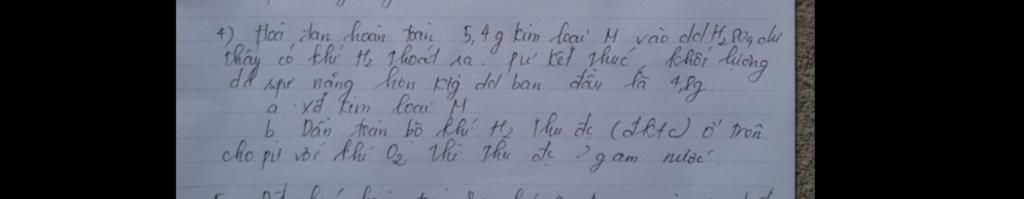 4) Hoà tan hoàn toàn 5,4g kim loại M vào dd H2SO4 dư
thấy có khí H2 thoát ra. pư kết thúc, khối lượng
dd spư nặng hơn klg dd ban đầu là 4,8g
a. xđ kim loại M
b Dẫn toàn bộ khí H2 thu đc (đktc) ở trên
cho pư với khí O2 thì thu đc ? gam nước.